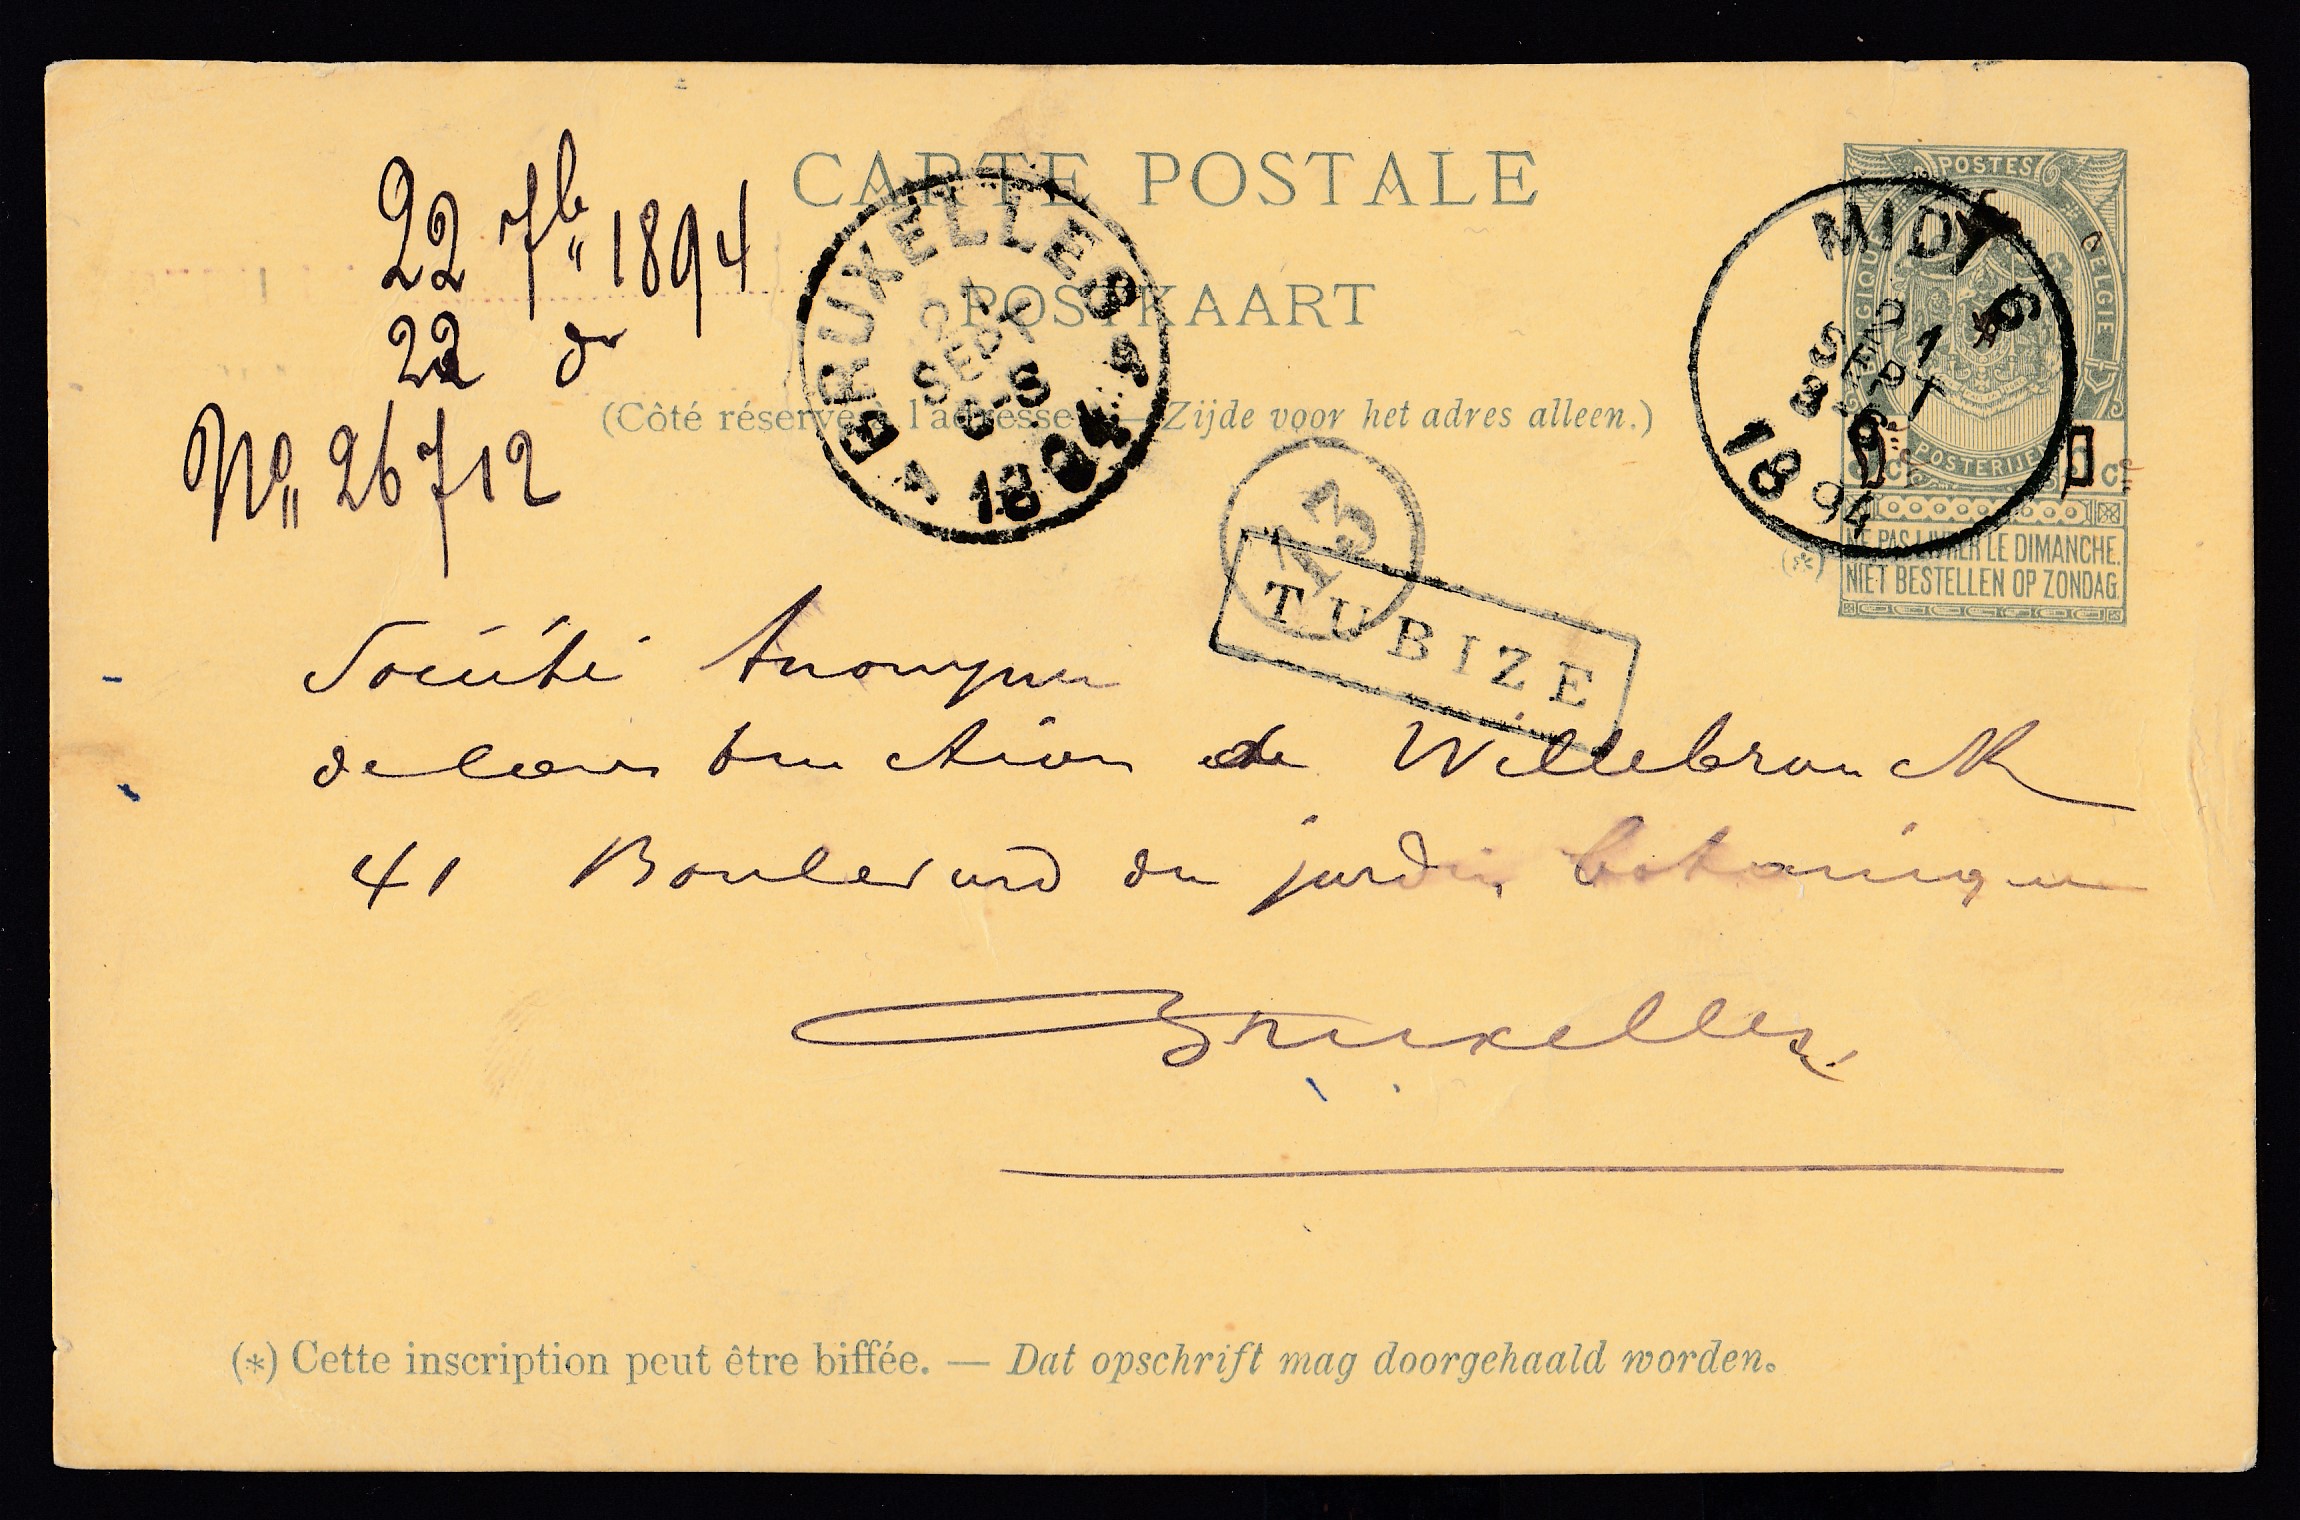 CARTE POSTALE
POSTKAART
(Côté réservé à l'adresse. — Zijde voor het adres alleen.)
22 7bre 1894
22 do
No 26712
BRUXELLES
21
SEPT
6-S
1894
1
MIDI 6
21
SEPT
3-6
1894
POSTES
BELGIQUE
BELGIE
POSTERIJEN
(*)
NE PAS LIVRER LE DIMANCHE.
NIET BESTELLEN OP ZONDAG.
73
TUBIZE
Société Anonyme
de Construction de Willebroeck
41 Boulevard du jardin botanique
Bruxelles
(*) Cette inscription peut être biffée. — Dat opschrift mag doorgehaald worden.